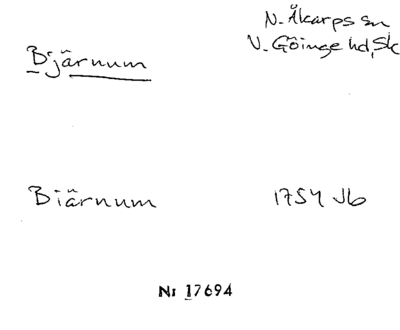 N. Åkarps sn
Bjärnum
V. Göinge hd, Sk
Biärnum
1754 Jb
Nr 17694